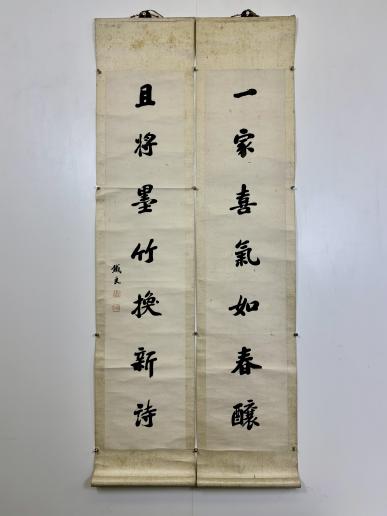 一家喜氣如春釀
且將墨竹換新詩
鐵良